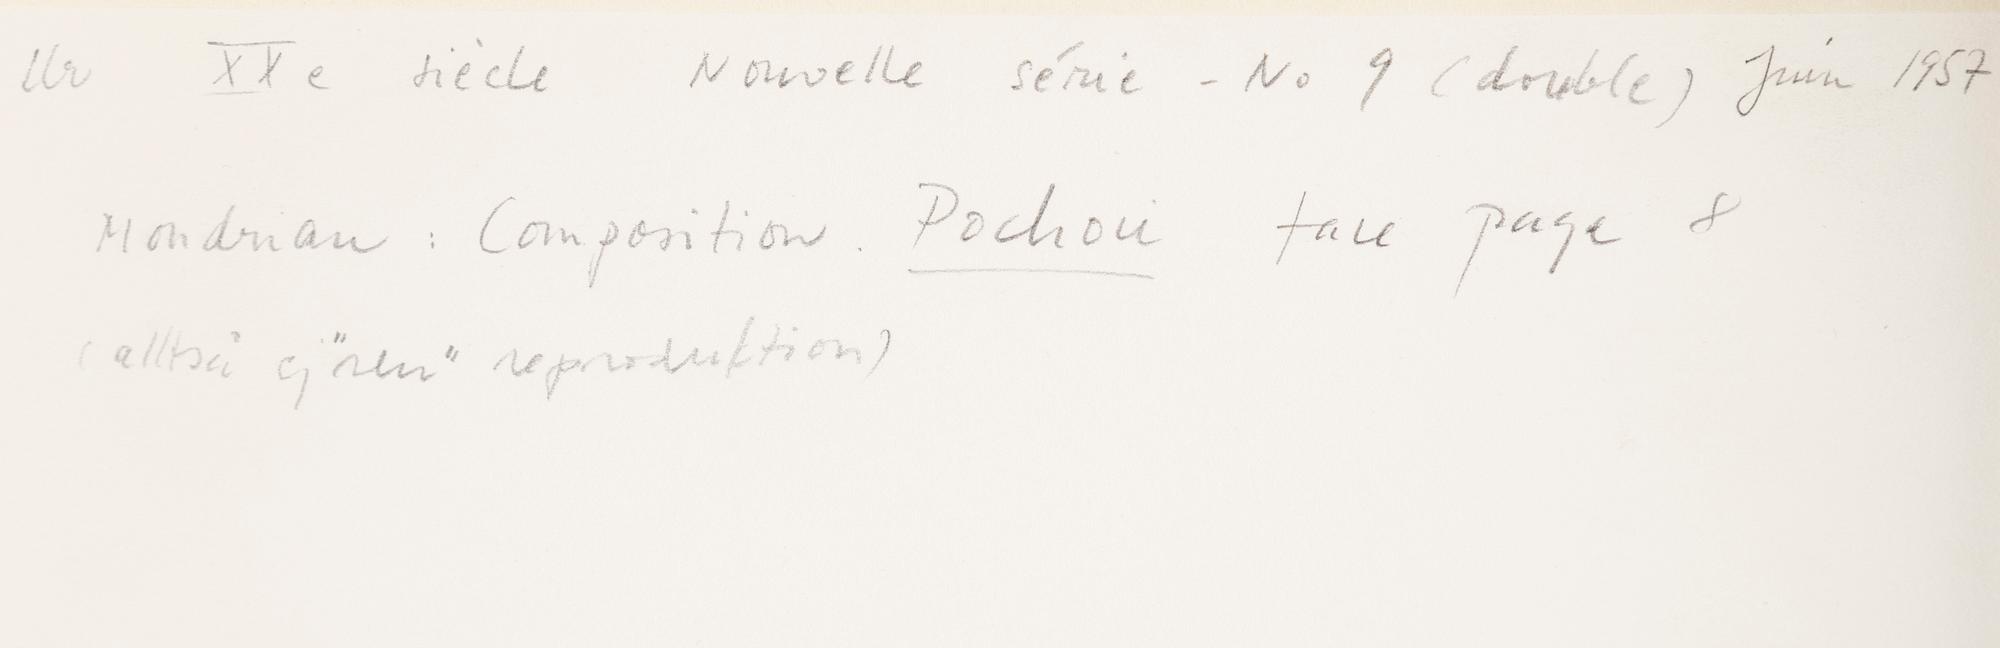 Ur XXe siècle Nouvelle série - No 9 (double) Juin 1957
Mondrian : Composition. Pochoir face page 8
(alltså ej "ren" reproduktion)